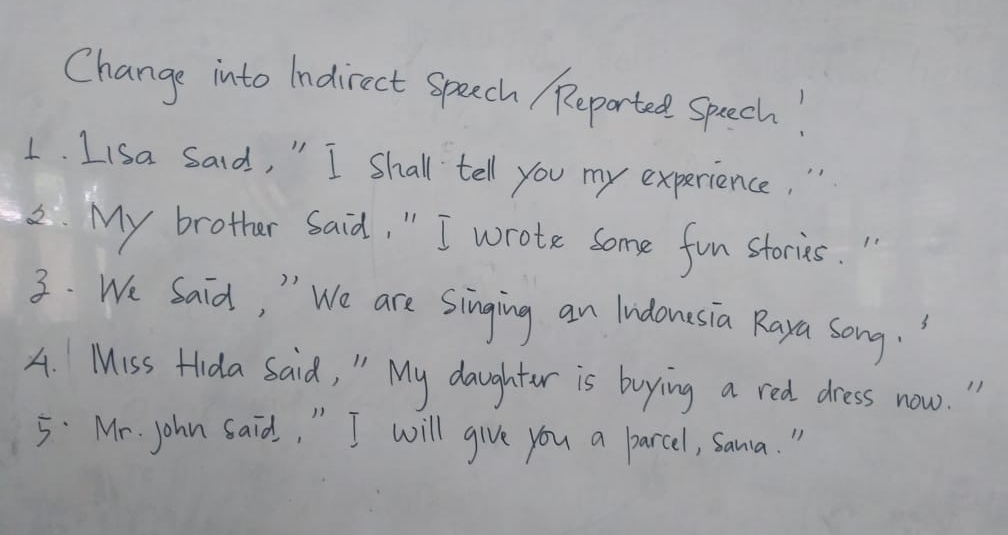 Change into Indirect Speech / Reported Speech !
1. Lisa said, " I shall tell you my experience."
2. My brother said, " I wrote some fun stories. "
3. We said, " We are singing an Indonesia Raya song. '
4. Miss Hida said, " My daughter is buying a red dress now. "
5. Mr. John said, " I will give you a parcel, Sania. "